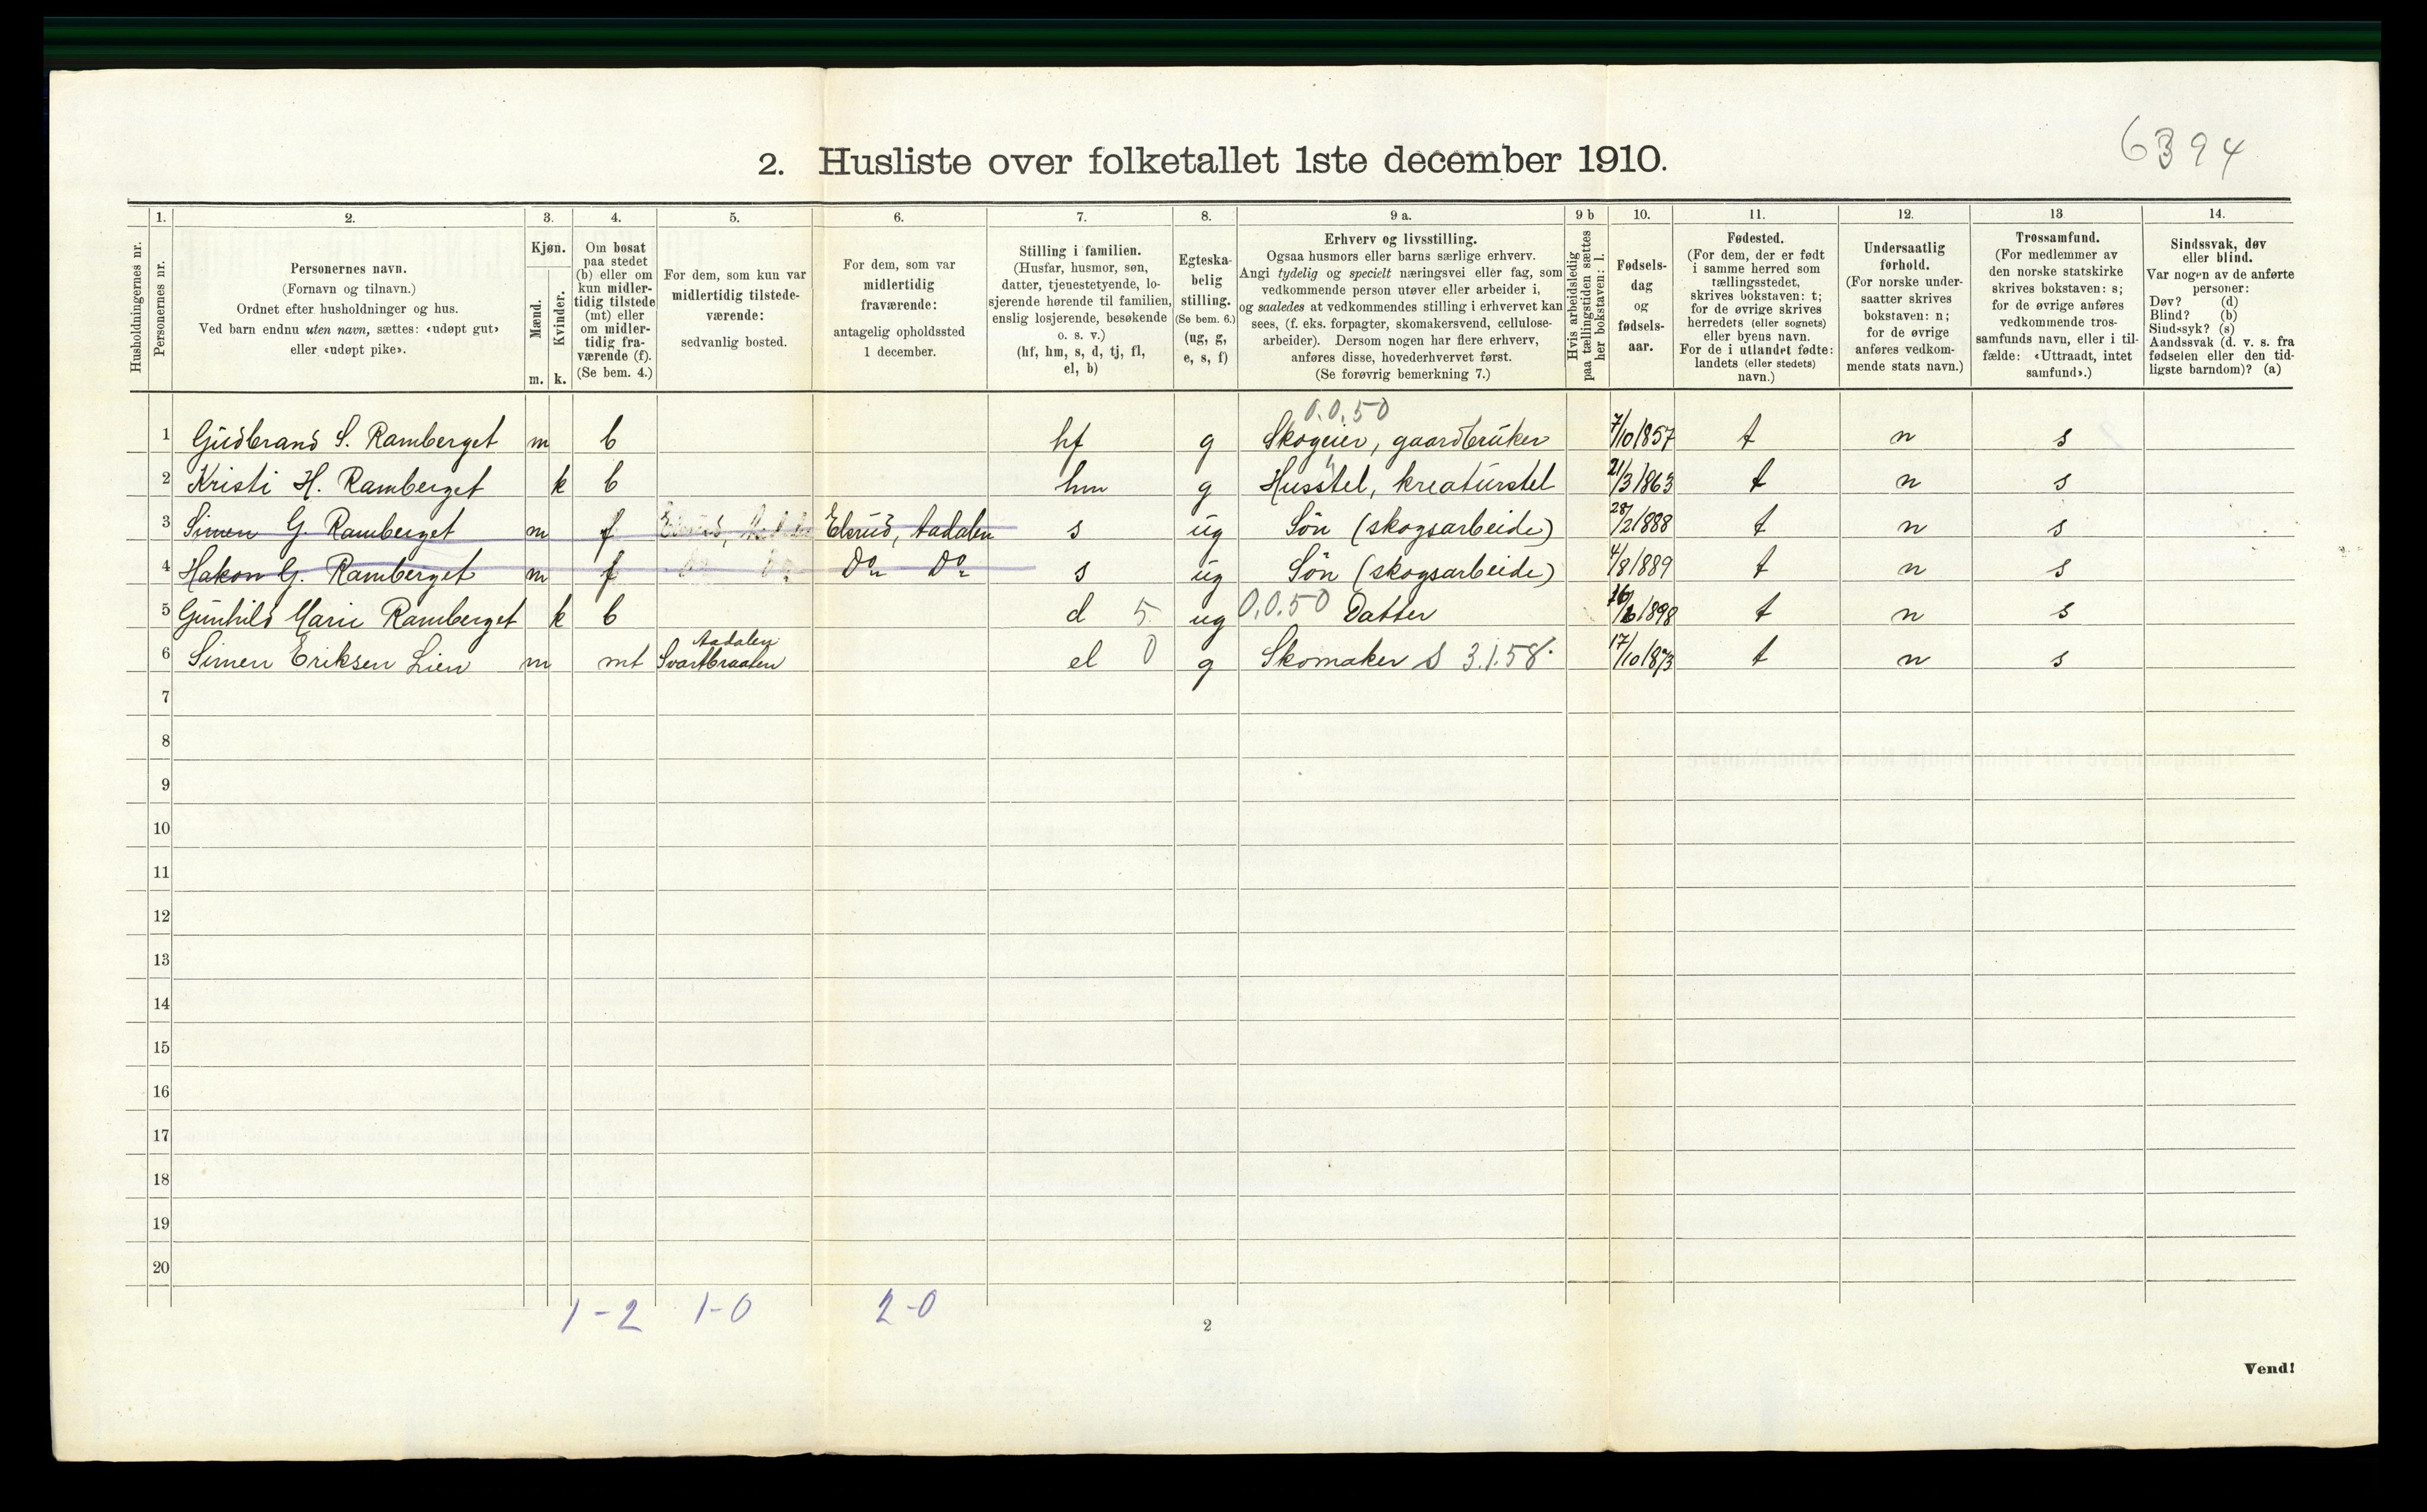 6394
2. Husliste over folketallet 1ste december 1910.
Husholdningernes nr.
1. Personernes nr.
2. Personernes navn.
(Fornavn og tilnavn.)
Ordnet efter husholdninger og hus.
Ved barn endnu uten navn, sættes: «udøpt gut»
eller «udøpt pike».
3. Kjøn.
Mænd. m.
Kvinder. k.
4. Om bosat
paa stedet
(b) eller om
kun midler-
tidig tilstede
(mt) eller
om midler-
tidig fra-
værende (f).
(Se bem. 4.)
5. For dem, som kun var
midlertidig tilstede-
værende:
sedvanlig bosted.
6. For dem, som var
midlertidig
fraværende:
antagelig opholdssted
1 december.
7. Stilling i familien.
(Husfar, husmor, søn,
datter, tjenestetyende, lo-
sjerende hørende til familien,
enslig losjerende, besøkende
o. s. v.)
(hf, hm, s, d, tj, fl,
el, b)
8. Egteska-
belig
stilling.
(Se bem. 6.)
(ug, g,
e, s, f)
9 a. Erhverv og livsstilling.
Ogsaa husmors eller barns særlige erhverv.
Angi tydelig og specielt næringsvei eller fag, som
vedkommende person utøver eller arbeider i,
og saaledes at vedkommendes stilling i erhvervet kan
sees, (f. eks. forpagter, skomakersvend, cellulose-
arbeider). Dersom nogen har flere erhverv,
anføres disse, hovederhvervet først.
(Se forøvrig bemerkning 7.)
9 b Hvis arbeidsledig
paa tællingstiden sættes
her bokstaven: l.
10. Fødsels-
dag
og
fødsels-
aar.
11. Fødested.
(For dem, der er født
i samme herred som
tællingsstedet,
skrives bokstaven: t;
for de øvrige skrives
herredets (eller sognets)
eller byens navn.
For de i utlandet fødte:
landets (eller stedets)
navn.)
12. Undersaatlig
forhold.
(For norske under-
saatter skrives
bokstaven: n;
for de øvrige
anføres vedkom-
mende stats navn.)
13 Trossamfund.
(For medlemmer av
den norske statskirke
skrives bokstaven: s;
for de øvrige anføres
vedkommende tros-
samfunds navn, eller i til-
fælde: «Uttraadt, intet
samfund».)
14. Sindssvak, døv
eller blind.
Var nogen av de anførte
personer:
Døv? (d)
Blind? (b)
Sindssyk? (s)
Aandssvak (d. v. s. fra
fødselen eller den tid-
ligste barndom)? (a)
0.0.50
1 Gudbrand S. Ramberget m b hf g Skogeier, gaardbruker 7/10 1857 t n s
2 Kristi H. Ramberget k b hm g Husstel, kreaturstel 21/3 1863 t n s
3 Simen G. Ramberget m f Elsrud, Aadalen s ug Søn (skogsarbeide) 28/2 1888 t n s
4 Hakon G. Ramberget m f Do Do s ug Søn (skogsarbeide) 4/8 1889 t n s
5 Gunhild Marie Ramberget k b d 5 ug 0.0.50 Datter 1898 t n s
6 Simen Eriksen Lien m mt Aadalen
Svartbraaten el 0 g Skomaker S 3.1.58. 17/10 1873 t n s
7
8
9
10
11
12
13
14
15
16
17
18
19
20
1-2 1-0 2-0
2
Vend!